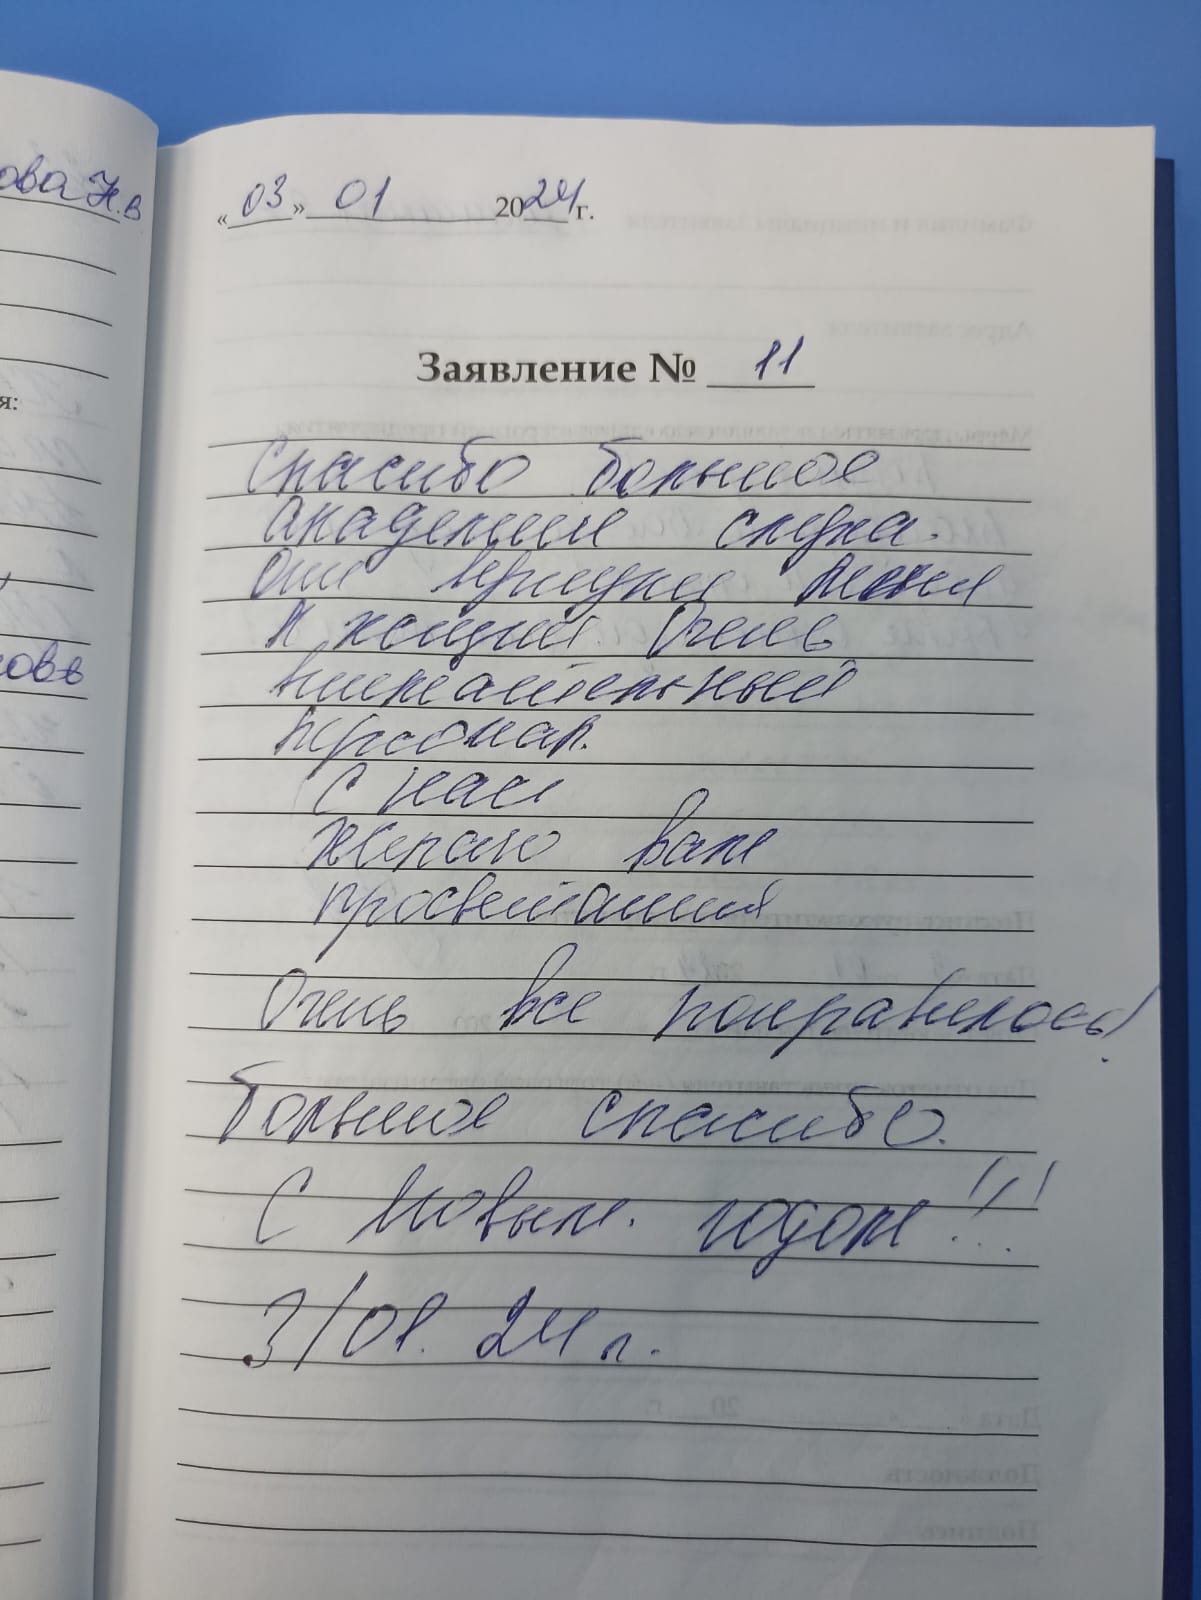 ова Н.в
«03» 01 2024 г.
Заявление № 11
я:
Спасибо большое
академии слуха.
Они вернули меня
к жизни. Очень
внимательный
персонал.
С нам
желаю вам
просветания
Очень все понравилось!
Большое спасибо.
С Новым. годом!!!
3/01. 24 г.